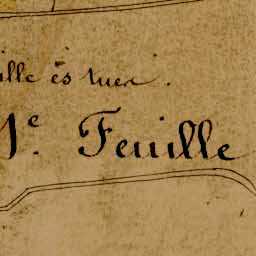 ille ès mer.
1e. Feuille